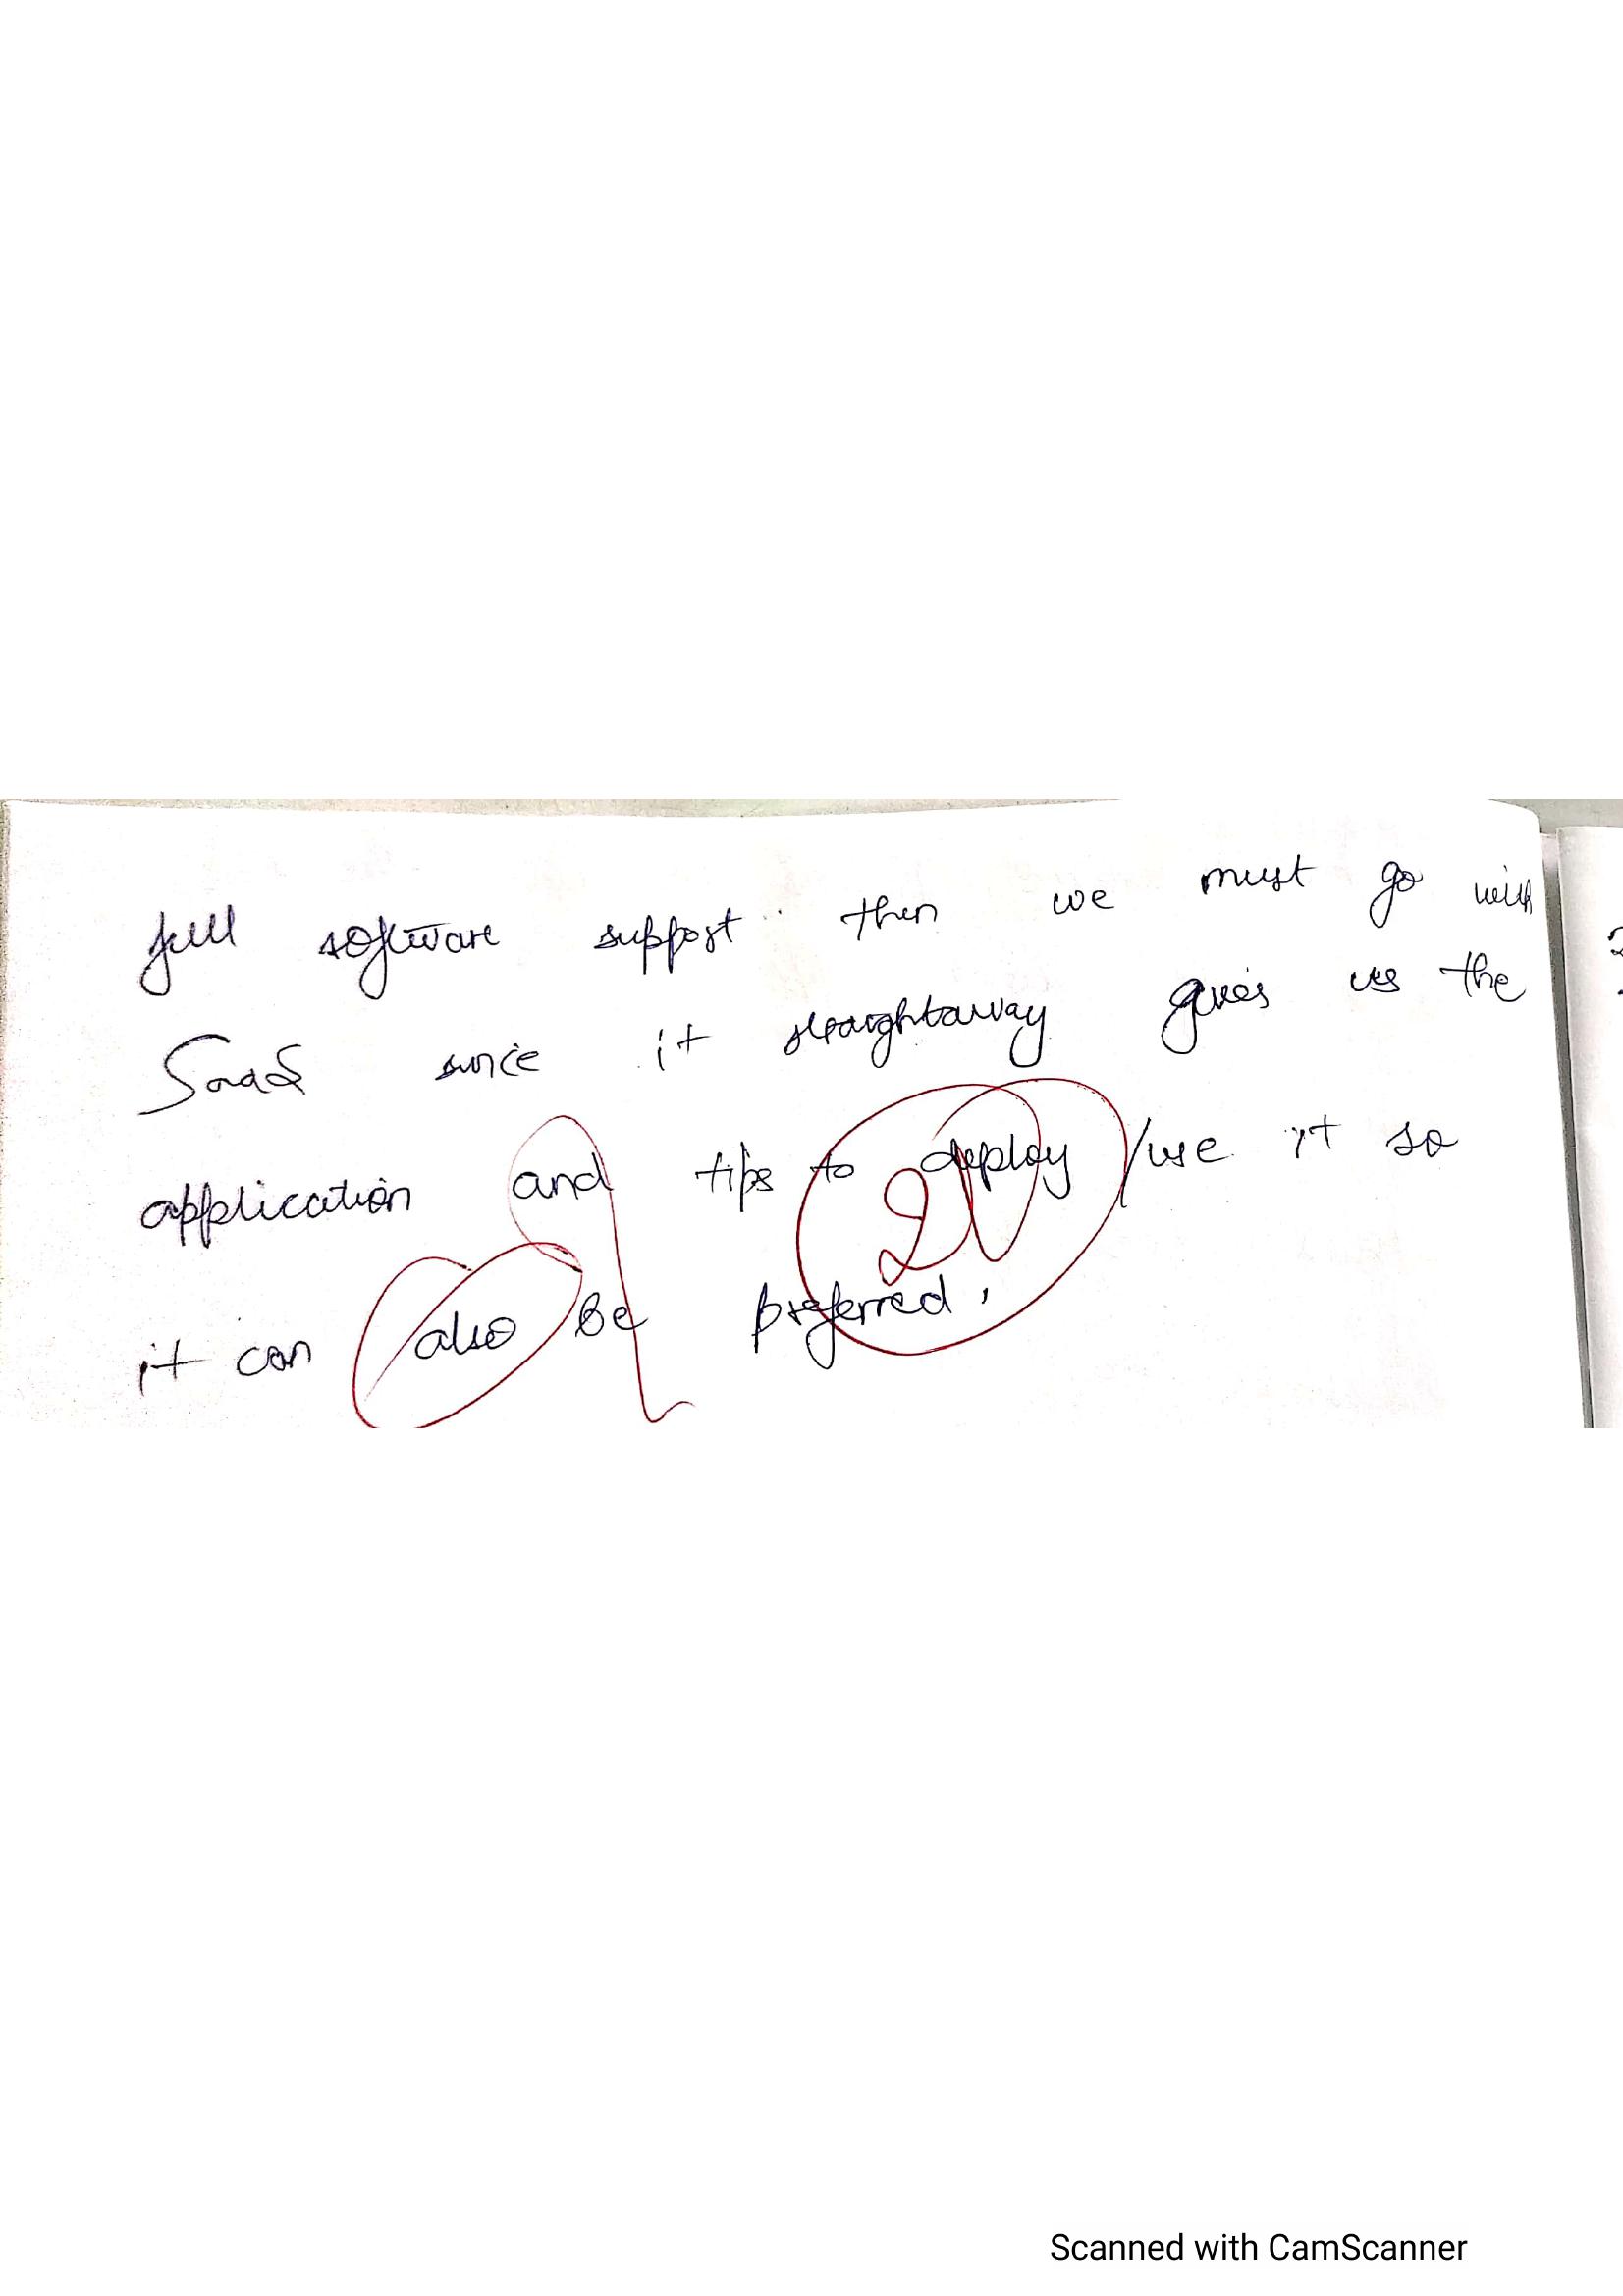 full software support then we must go with
SaaS since it straightaway gives us the
application and tips to deploy /use it so
it can also be preferred.
Scanned with CamScanner